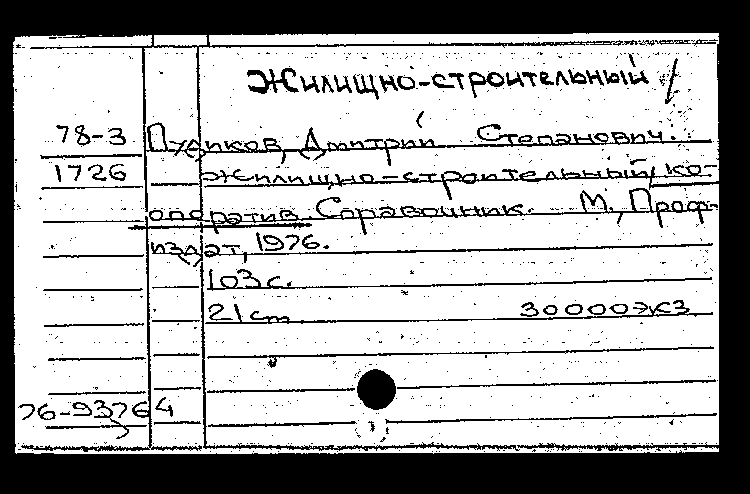 Жилищно-строительный
78-3 Пудиков, Дмитрий Степанович.
1726 Жилищно-строительный ко-
оператив. Справочник. М., Проф-
издат, 1976.
103 с.
21 cm 30000экз
76-93764